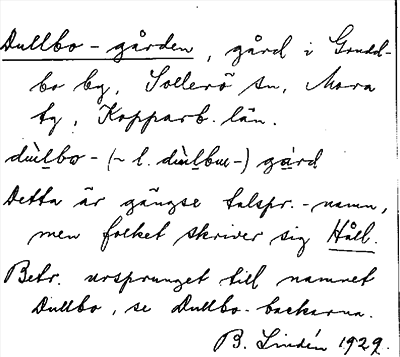 Dullbo-gården, gård i Gruddbo by, Sollerö sn, Mora
tg, Kopparb. län.
dùlbo- (~ l. dùlbu-) gård
Detta är gängse talspr.-namn,
men folket skriver sig Håll.
Betr. ursprunget till namnet
Dullbo, se Dullbo-backarna.
B. Lindén 1929.